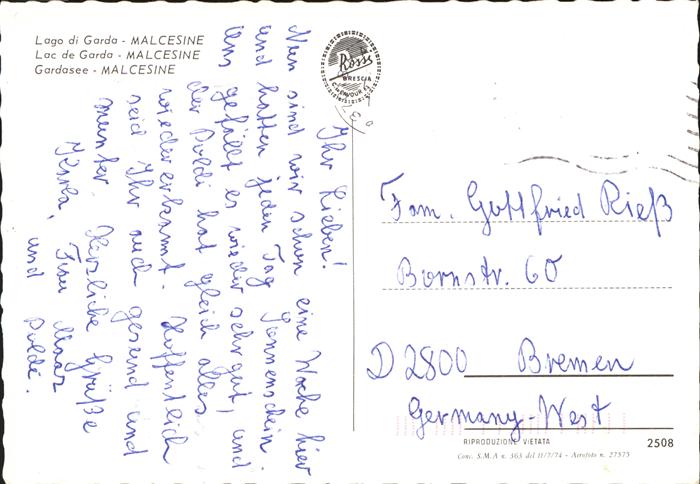 Lago di Garda - MALCESINE
Lac de Garda - MALCESINE
Gardasee - MALCESINE
Rossi
BRESCIA
Ihr Lieben!
Nun sind wir schon eine Woche hier
und hatten jeden Tag Sonnenschein.
Uns gefällt es wieder sehr gut, und
der Poldi hat gleich alles
wieder erkannt. Hoffentlich
seid Ihr auch gesund und
munter. Herzliche Grüße
Frau Maas
und Poldi.
Fam. Gottfried Rieß
Bornstr. 60
D 2800 Bremen
Germany-West
RIPRODUZIONE VIETATA
2508
Conc. S.M.A n. 363 del 11/7/74 - Aerofoto n. 27575